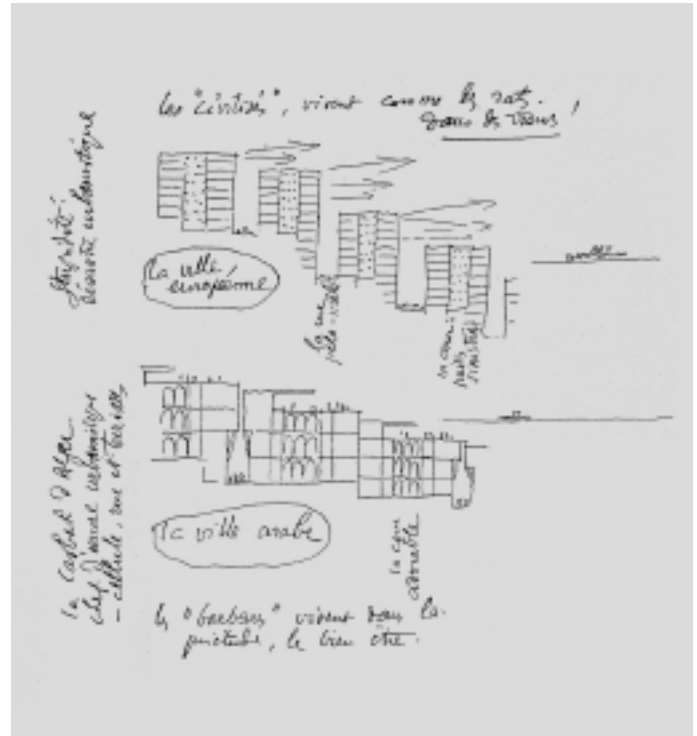 les "civilisés", vivent comme les rats.
dans les trous !
Stupidité:
désastre urbanistique
la ville,
européenne
la rue
la cour:
puits très
sinistre
la casbah d'Alger
chef d'œuvre urbanistique
– cellule, rue et terrasses
la ville arabe
la cour
adorable
les "barbares" vivent dans la
quiétude, le bien être.